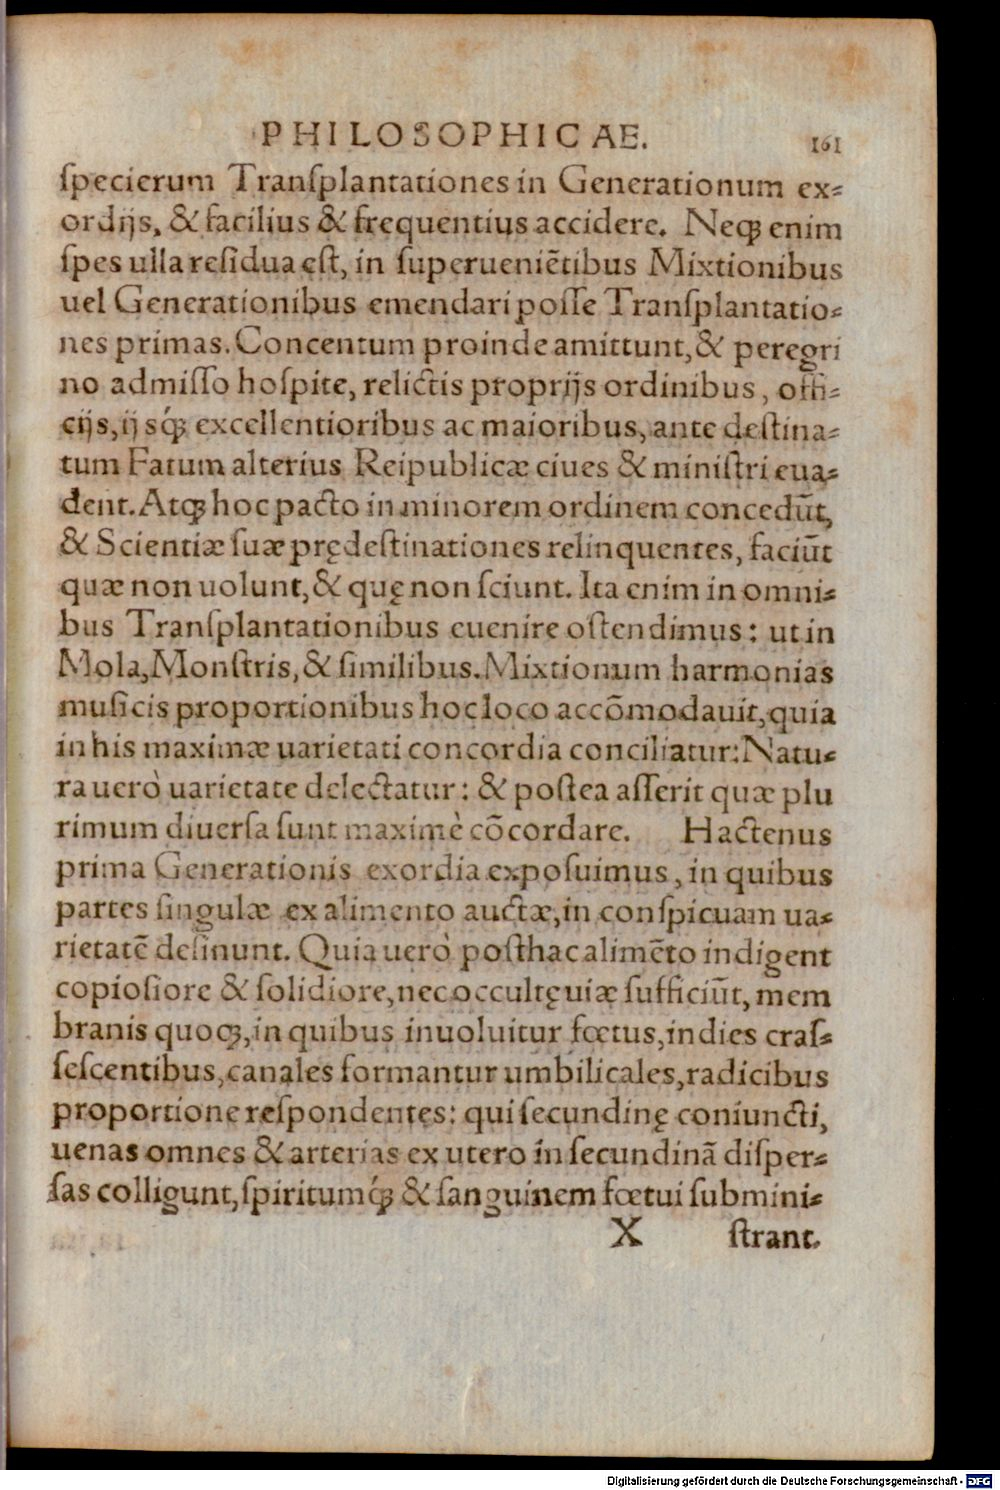 PHILOSOPHICAE. 161
ſpecierum Tranſplantationes in Generationum ex-
ordijs, & facilius & frequentius accidere. Neq; enim
ſpes ulla reſidua eſt, in ſuperueniẽtibus Mixtionibus
uel Generationibus emendari poſſe Tranſplantatio-
nes primas. Concentum proinde amittunt, & peregri
no admiſſo hoſpite, relictis proprijs ordinibus, offi-
cijs, ijsq́; excellentioribus ac maioribus, ante deſtina-
tum Fatum alterius Reipublicæ ciues & miniſtri eua-
dent. Atq; hoc pacto in minorem ordinem concedũt,
& Scientiæ ſuæ prędeſtinationes relinquentes, faciũt
quæ non uolunt, & quę non ſciunt. Ita enim in omni-
bus Tranſplantationibus euenire oſtendimus: ut in
Mola, Monſtris, & ſimilibus. Mixtionum harmonias
muſicis proportionibus hoc loco accõmodauit, quia
in his maximæ uarietati concordia conciliatur: Natu-
ra uerò uarietate delectatur: & poſtea aſſerit quæ plu
rimum diuerſa ſunt maximè cõcordare. Hactenus
prima Generationis exordia expoſuimus, in quibus
partes ſingulæ ex alimento auctæ, in conſpicuam ua-
rietatẽ deſinunt. Quia uerò poſthac alimẽto indigent
copioſiore & ſolidiore, nec occultę uiæ ſufficiũt, mem
branis quoq;, in quibus inuoluitur fœtus, indies craſ-
ſeſcentibus, canales formantur umbilicales, radicibus
proportione reſpondentes: qui ſecundinę coniuncti,
uenas omnes & arterias ex utero in ſecundinã diſper-
ſas colligunt, ſpiritumq́; & ſanguinem fœtui ſubmini-
X ſtrant.
Digitalisierung gefördert durch die Deutsche Forschungsgemeinschaft - DFG